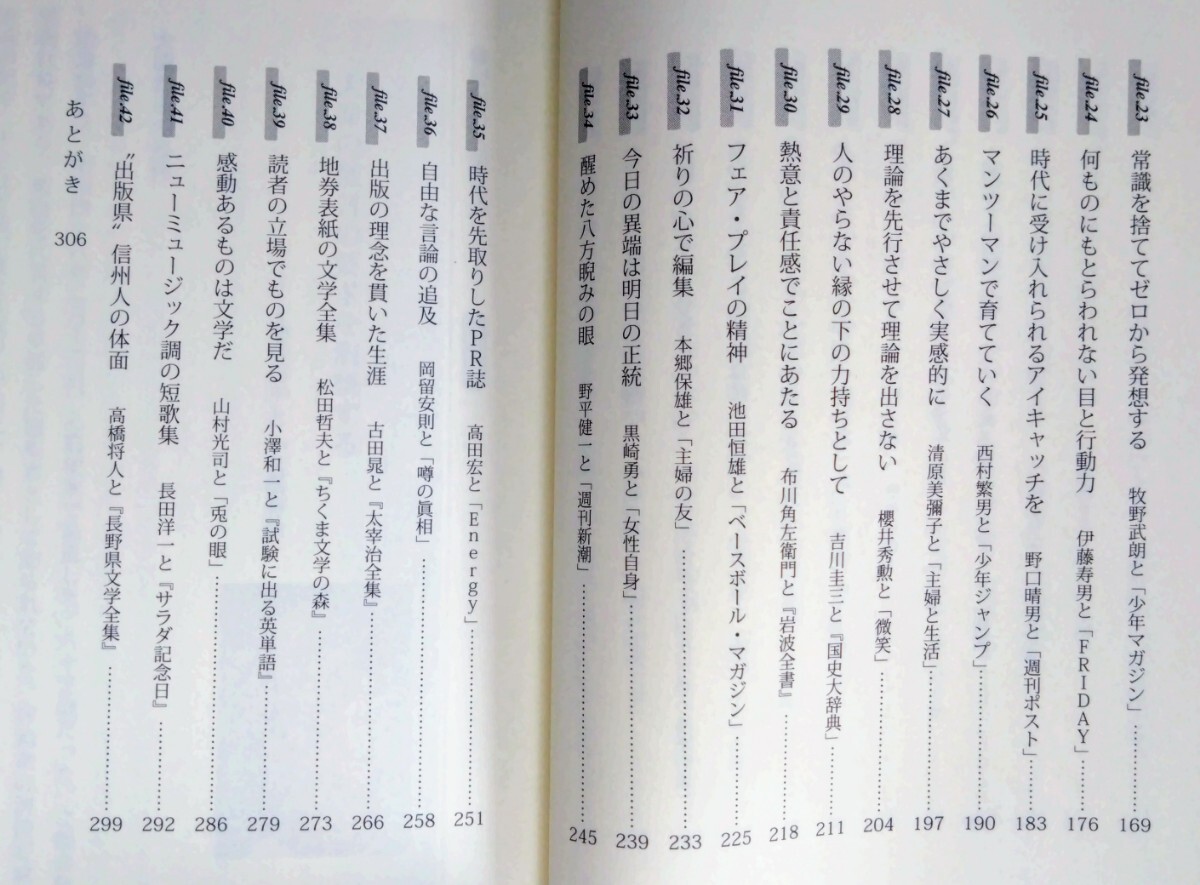 file.23 常識を捨ててゼロから発想する 牧野武朗と「少年マガジン」………… 169
file.24 何ものにもとらわれない目と行動力 伊藤寿男と「FRIDAY」………… 176
file.25 時代に受け入れられるアイキャッチを 野口晴男と「週刊ポスト」………… 183
file.26 マンツーマンで育てていく 西村繁男と「少年ジャンプ」………… 190
file.27 あくまでやさしく実感的に 清原美彌子と「主婦と生活」………… 197
file.28 理論を先行させて理論を出さない 櫻井秀勲と「微笑」………… 204
file.29 人のやらない縁の下の力持ちとして 吉川圭三と『国史大辞典』………… 211
file.30 熱意と責任感でことにあたる 布川角左衛門と『岩波全書』………… 218
file.31 フェア・プレイの精神 池田恒雄と「ベースボール・マガジン」………… 225
file.32 祈りの心で編集 本郷保雄と「主婦の友」………… 233
file.33 今日の異端は明日の正統 黒崎勇と「女性自身」………… 239
file.34 醒めた八方睨みの眼 野平健一と「週刊新潮」………… 245
file.35 時代を先取りしたPR誌 高田宏と「Energy」………… 251
file.36 自由な言論の追及 岡留安則と「噂の眞相」………… 258
file.37 出版の理念を貫いた生涯 古田晁と『太宰治全集』………… 266
file.38 地券表紙の文学全集 松田哲夫と『ちくま文学の森』………… 273
file.39 読者の立場でものを見る 小澤和一と『試験に出る英単語』………… 279
file.40 感動あるものは文学だ 山村光司と『兎の眼』………… 286
file.41 ニューミュージック調の短歌集 長田洋一と『サラダ記念日』………… 292
file.42 〝出版県〟信州人の体面 高橋将人と『長野県文学全集』………… 299
あとがき 306